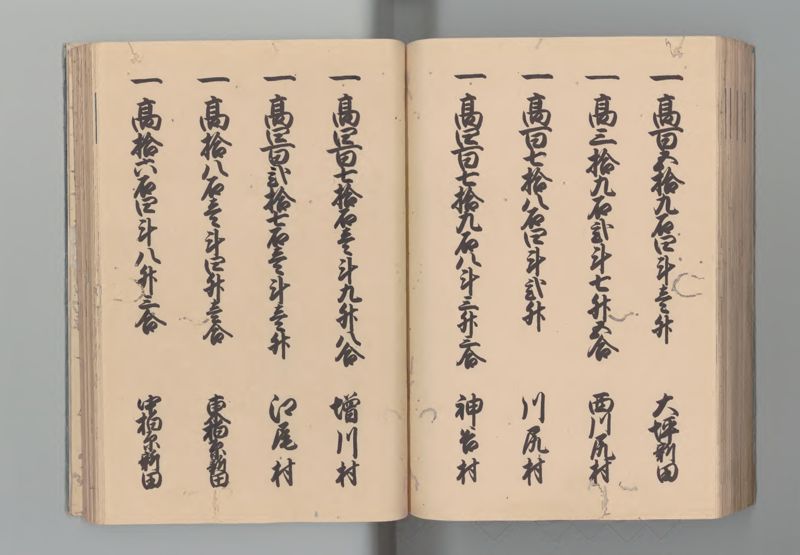 一高百五拾九石四斗壱升 大坪新田
一高三拾九石弐斗七升五合 西川尻村
一高百七拾八石四斗弐升 川尻村
一高四百七拾九石八斗三升三合 神谷村
一高四百七拾石壱斗九升八合 増川村
一高四百弐拾七石壱斗壱升 江尾村
一高拾八石壱斗四升壱合 東柏原新田
一高拾六石四斗八升三合 中柏原新田